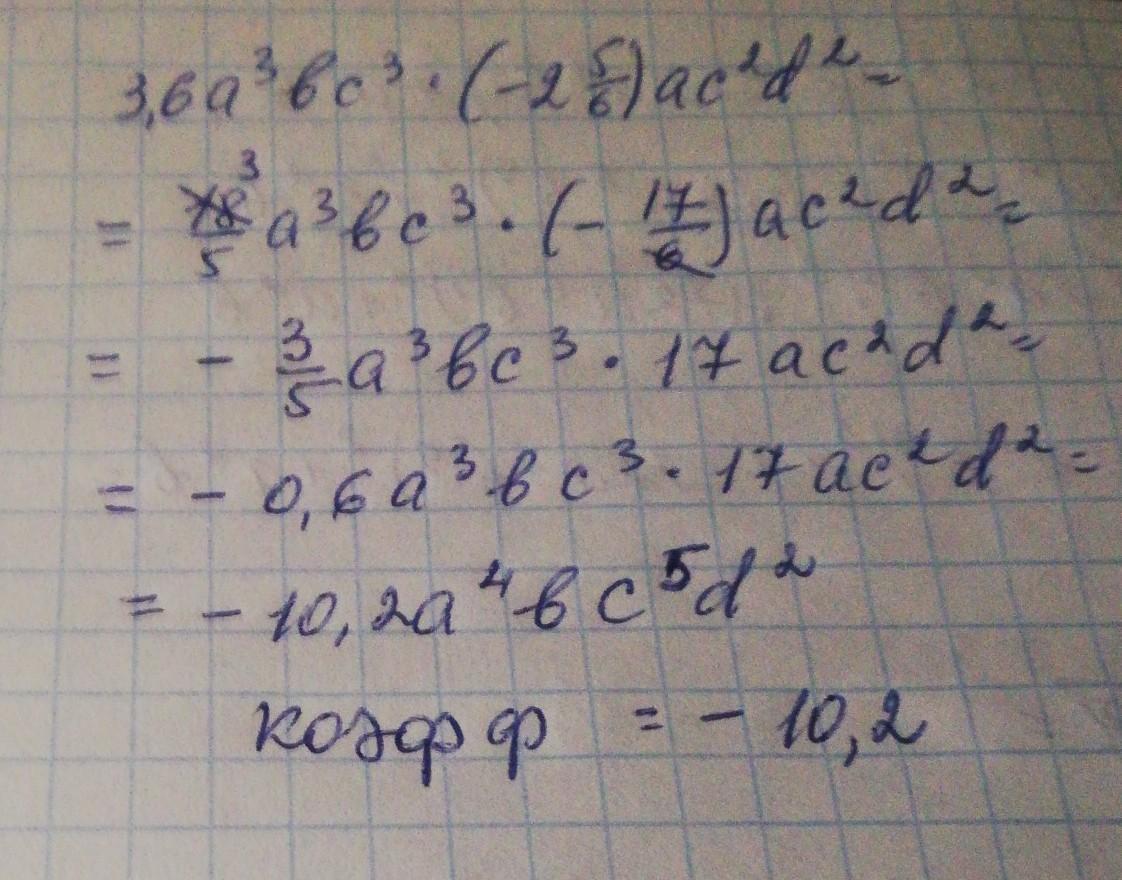 3,6a³bc³ · (-2 5/6)ac²d² =
= 18/5 ³ a³bc³ · (- 17/6)ac²d² =
= - 3/5 a³bc³ · 17 ac²d² =
= - 0,6a³bc³ · 17ac²d² =
= - 10,2a⁴bc⁵d²
коэфф = - 10,2